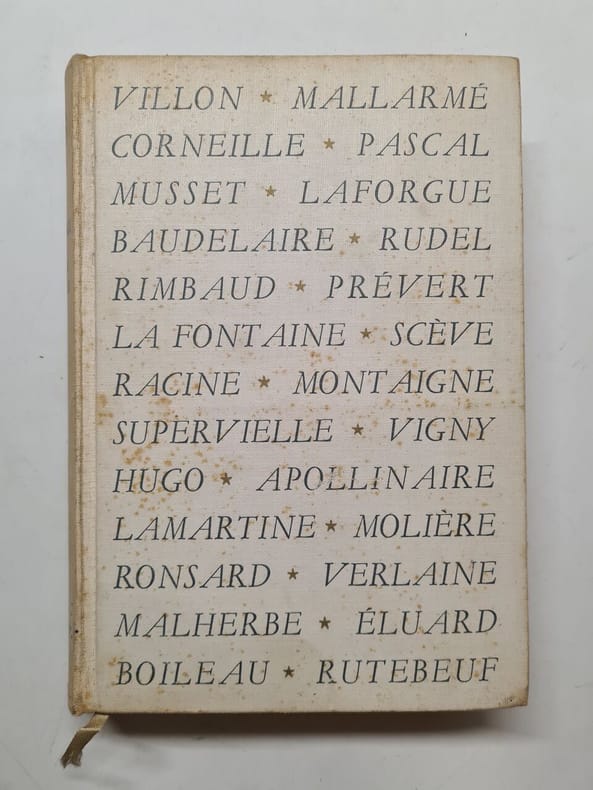 VILLON ★ MALLARMÉ
CORNEILLE ★ PASCAL
MUSSET ★ LAFORGUE
BAUDELAIRE ★ RUDEL
RIMBAUD ★ PRÉVERT
LA FONTAINE ★ SCÈVE
RACINE ★ MONTAIGNE
SUPERVIELLE ★ VIGNY
HUGO ★ APOLLINAIRE
LAMARTINE ★ MOLIÈRE
RONSARD ★ VERLAINE
MALHERBE ★ ÉLUARD
BOILEAU ★ RUTEBEUF